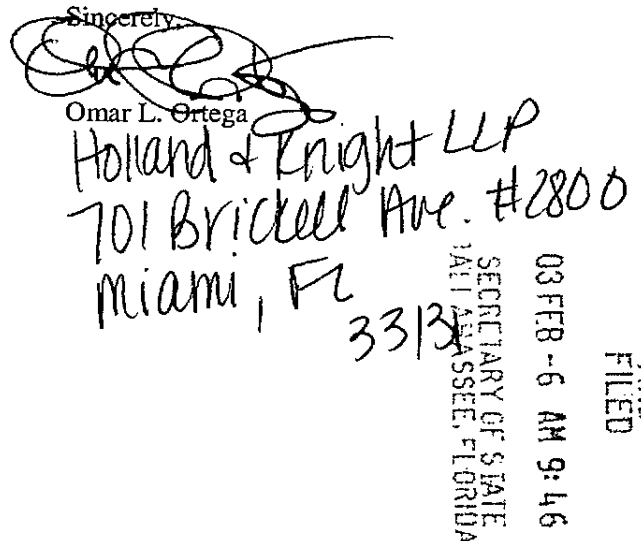 Sincerely,
Omar L. Ortega
Holland & Knight LLP
701 Brickell Ave. #2800
Miami, FL
33131
FILED
03 FEB -6 AM 9:46
SECRETARY OF STATE
TALLAHASSEE, FLORIDA